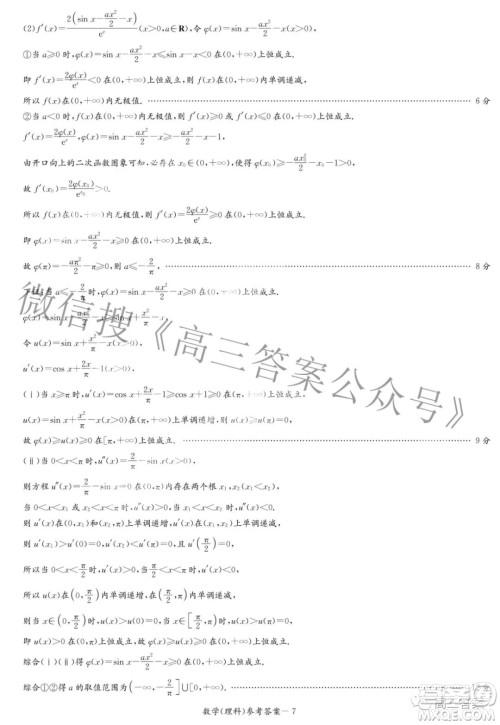 (2)f′(x)=2(sin x-ax²/2-x)/eˣ(x>0,a∈R),令φ(x)=sin x-ax²/2-x,
①当a≥0时,φ(x)=sin x-ax²/2-x≤sin x-x<0在(0,+∞)上恒成立.
即f′(x)=2φ(x)/eˣ<0在(0,+∞)上恒成立,则f(x)在(0,+∞)内单调递减,
所以f(x)在(0,+∞)内无极值. 6分
②当a<0时,f(x)在(0,+∞)内无极值,则f′(x)≥0或f′(x)≤0在(0,+∞)上恒成立.
f′(x)=2φ(x)/eˣ,φ(x)=sin x-ax²/2-x≥-ax²/2-x-1,
由开口向上的二次函数图象可知,必存在x₀∈(0,+∞),使得φ(x₀)≥-ax₀²/2-x₀-1>0,
故f′(x₀)=2φ(x₀)/eˣ⁰>0.
所以f(x)在(0,+∞)内无极值,则f′(x)≥0在(0,+∞)上恒成立.
即φ(x)=sin x-ax²/2-x≥0在(0,+∞)上恒成立.
故φ(π)=-aπ²/2-π≥0,则a≤-2/π, 8分
下证:当a≤-2/π时,φ(x)=sin x-ax²/2-x≥0在(0,+∞)上恒成立.
φ(x)=sin x-ax²/2-x≥sin x+x²/π-x,
令u(x)=sin x+x²/π-x,
u′(x)=cos x+2x/π-1,
(ⅰ)当x≥π时,u′(x)=cos x+2x/π-1≥cos x+1≥0在(0,+∞)上恒成立.
u(x)=sin x+x²/π-x在[π,+∞)上单调递增,则u(x)≥u(π)=0,
故φ(x)≥u(x)≥0在[π,+∞)上恒成立. 9分
(ⅱ)当0<x<π时,u″(x)=2/π-sin x(x>0),
则方程u″(x)=2/π-sin x=0在(0,π)内存在两个根x₁,x₂(x₁<x₂),
当0<x<x₁或x₂<x<π时,u″(x)>0,当x₁<x<x₂时,u″(x)<0,
则u′(x)在(0,x₁)和(x₂,π)上单调递增,u′(x)在(x₁,x₂)上单调递减,
则u′(x₁)>u′(0)=0,u′(x₂)<u′(π)=0,且u′(π/2)=0,
所以当0<x<π/2时,u′(x)>0,当π/2<x<π时,u′(x)<0,
所以u(x)在(0,π/2)内单调递增,在(π/2,π)内单调递减,
则当x∈(0,π/2)时,u(x)>u(0)=0,当x∈[π/2,π)时,u(x)>u(π)=0,
即u(x)>0在(0,π)上恒成立,故φ(x)≥u(x)≥0在(0,π)上恒成立.
综合(ⅰ)(ⅱ)得φ(x)=sin x-ax²/2-x≥0在(0,+∞)上恒成立.
综合①②得a的取值范围为(-∞,-2/π]∪[0,+∞).
数学(理科)参考答案-7
微信搜《高三答案公众号》
高三答案